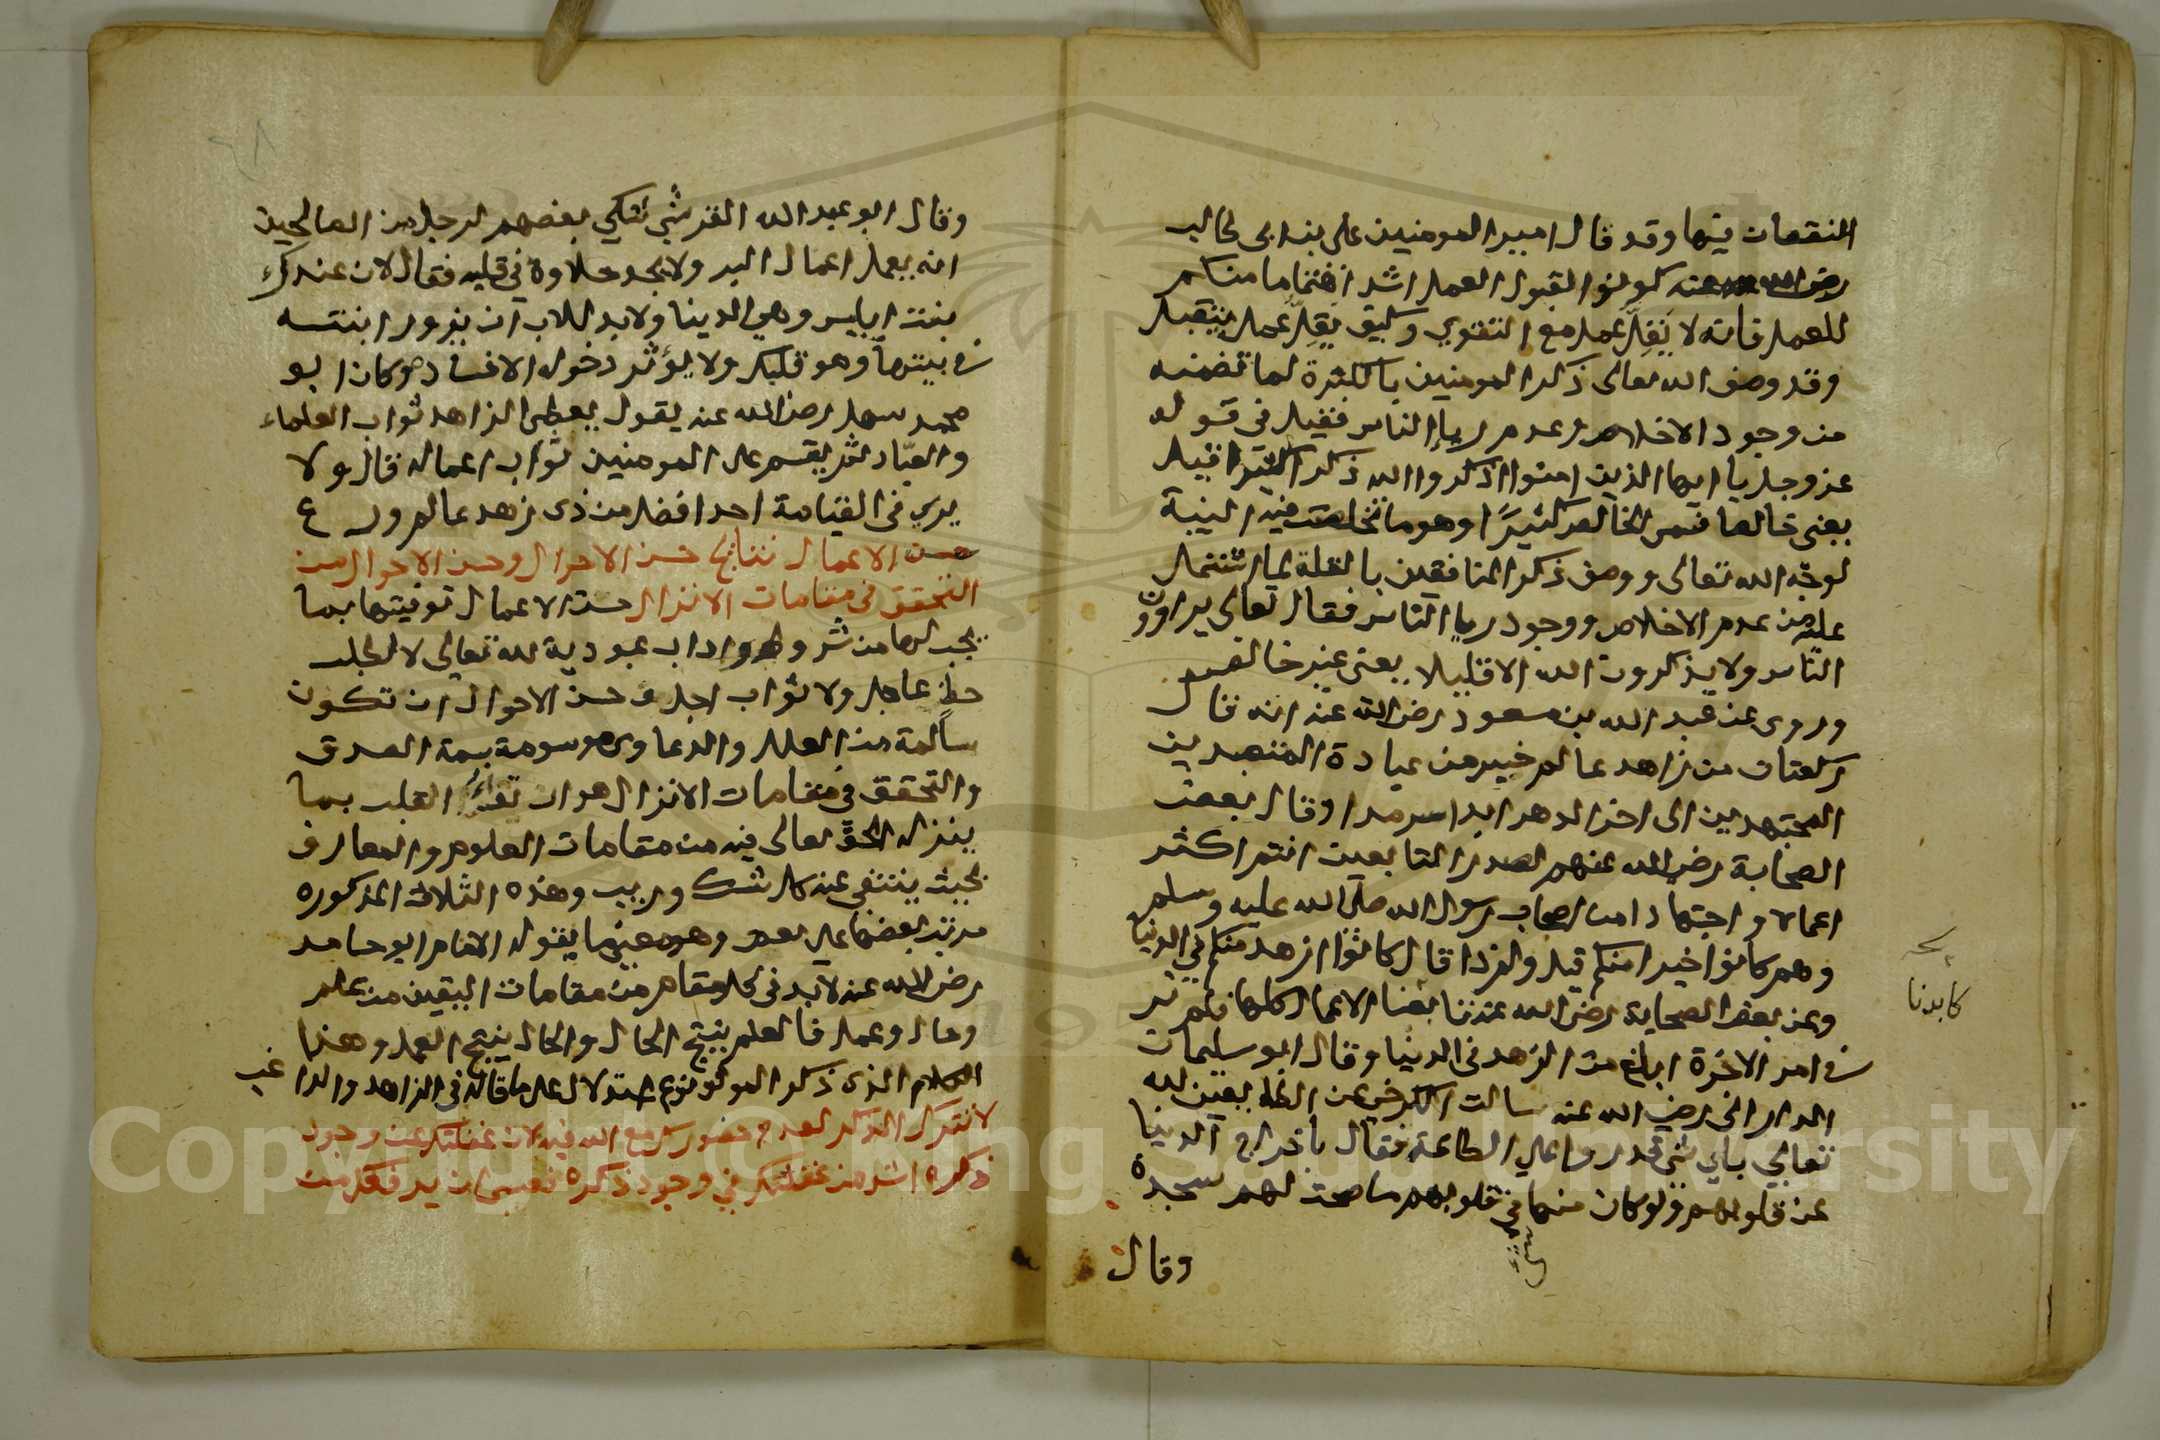 النقصات فيها وقد قال امير المومنين على بن ابى طالب
رضى الله عنه كونوا لقبول العمل اشد اهتماما منكم
للعمل فانه لا يَقِلّ عمل مع التقوي وكيف يَقِلّ عمل يتقبل
وقد وصف الله تعالى ذكر المومنين بالكثرة لما تضمنه
من وجود الاخلاص وعدم رياء الناس فقيل في قوله
عز وجل يا ايها الذين امنوا اذكروا الله ذكرا كثيرا قيل
يعنى خالصا فسمى الخالص كثيرًا وهو ما خلصت فيه النية
لوجه الله تعالى ووصف ذكر المنافقين بالقلة لما اشتمل
عليه من عدم الاخلاص ووجود ريا الناس فقال تعالى يراؤن
الناس ولا يذكرون الله الا قليلا يعنى غير خالص
وروى عن عبد الله بن مسعود رضى الله عنه انه قال
ركعتان من زاهد عالم خير من عبادة المتعبدين
المجتهدين الى اخر الدهر ابدا سرمدا وقال بعض
الصحابة رضى الله عنهم لصدر التابعين انتم اكثر
اعمالا واجتهادا من اصحاب رسول الله صلى الله عليه وسلم
وهم كانوا خيرا منكم قيل ولم ذا قال كانوا ازهد منكم في الدنيا
وعن بعض الصحابة رضى الله عنه تابعنا الاعمال كلها فلم نر
في امر الاخرة ابلغ من الزهد في الدنيا وقال ابو سليمان
الداراني رضي الله عنه سالت الكرخى عن الطايعين لله
تعالى باي شي قدروا على الطاعة فقال باخراج الدنيا
عن قلوبهم ولو كان منها في قلوبهم ما صحت لهم سجدة
شي
وقال
كابدنا
وقال ابو عبد الله القرشي شكي بعضهم لرجل من الصالحين
انه يعمل اعمال البر ولا يجد حلاوة في قلبه فقال لان عندك
بنت ابليس وهي الدنيا ولا بد للاب ان يزور ابنته
في بيتها وهو قلبك ولا يؤثر دخوله الا فسادا وكان ابو
محمد سهل رضى الله عنه يقول يعطى الزاهد ثواب العلماء
والعبّاد ثم يقسم على المومنين ثواب اعماله قال ولا
يري في القيامة احد افضل من ذى زهد عالم ورع
حسن الاعمال نتايج حسن الاحوال وحسن الاحوال من
التحقق في مقامات الانزال حسن الاعمال توفيتها بما
يجب لها من شروط واداب عبودية لله تعالى لا لطلب
حظ عاجل ولا ثواب اجل وحسن الاحوال ان تكون
سالمة من العلل والدعاوى موسومة بسمة الصدق
والتحقق في مقامات الانزال هو ان القلب بما
ينزله الحق تعالى فيه من مقامات العلوم والمعارف
بحيث ينتفى عنه كل شك وريب وهذه الثلاث المذكوره
مرتب بعضها على بعض وهو معنى ما يقوله الامام ابو حامد
رضى الله عنه لا بد في كل مقام من مقامات اليقين من علم
وحال وعمل فالعلم ينتج الحال والحال ينتج العمل وهذا
الكلام الذى ذكر المولف نوع استدلال على ما قاله في الزاهد والراغب
لا تترك الذكر لعدم حضورك مع الله فيه لان غفلتك عن وجود
ذكره اشد من غفلتك في وجود ذكره فعسى ان يرفعك من
Copyright © King Saud University